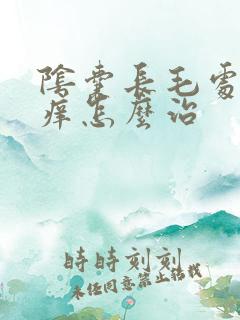 陰囊長毛處
痒怎麼治
時時刻刻
未経同意禁止转载